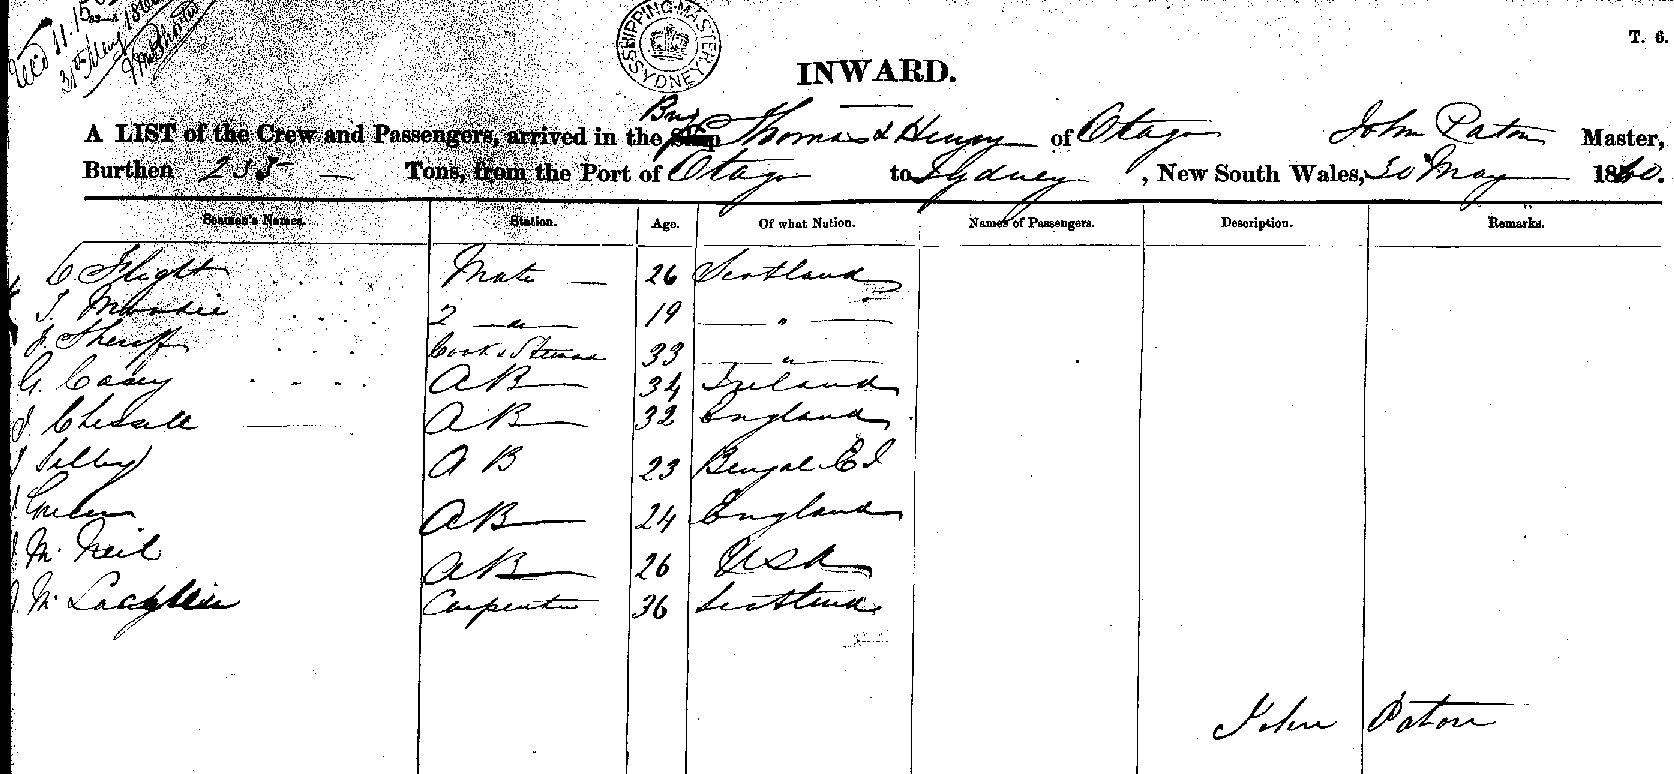 Rec'd 11.15
31st May 1860
SHIPPING MASTER SYDNEY
T. 6.
INWARD.
Brig
A LIST of the Crew and Passengers, arrived in the Ship Thomas & Henry of Otago John Paton Master,
Burthen Tons, from the Port of Otago to Sydney, New South Wales, 30 May 1860.
Seamen's Names. Station. Age. Of what Nation. Names of Passengers. Description. Remarks.
Flight Mate — 26 Scotland
2 — " — 19 — " —
J. Sheriff Cook & Steward 33 — " —
G. Casey A B 34 Ireland
J. A B 32 England
Selby A B 23 Bengal E I
A B 24 England
J. Mc Neil A B 26 USA
J. Mc Carpenter 36 Scotland
John Paton